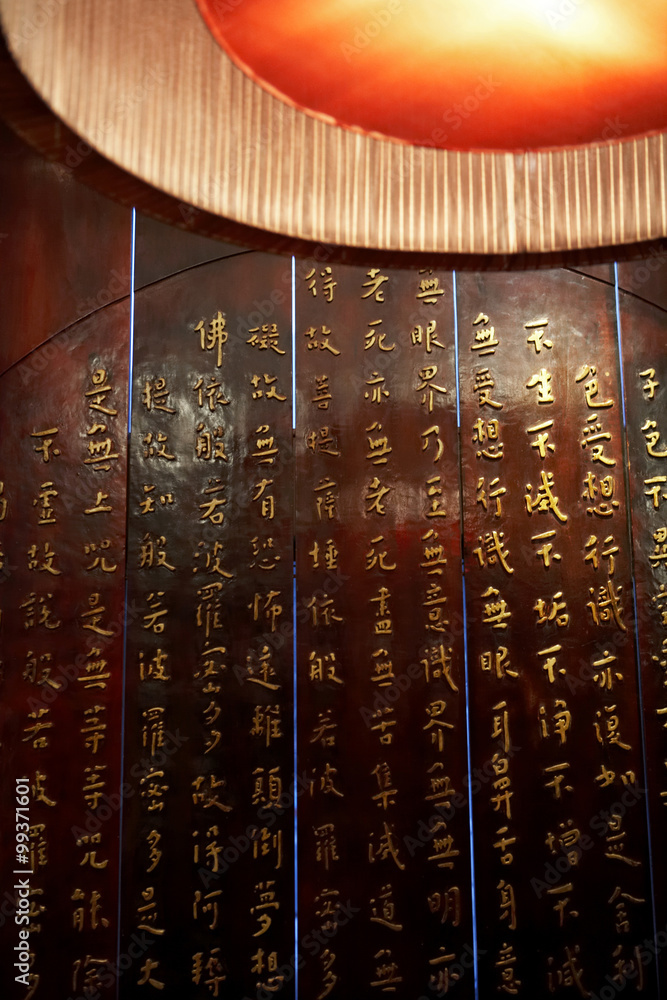 子色不異
色受想行識亦復如是舍利
不生不滅不垢不淨不增不減
無受想行識無眼耳鼻舌身意
無眼界乃至無意識界無無明亦
老死亦無老死盡無苦集滅道無
得故菩提薩埵依般若波羅蜜多
礙故無有恐怖遠離顛倒夢想
佛依般若波羅蜜多故得阿耨
提故知般若波羅蜜多是大
是無上咒是無等等咒能除
不虛故說般若波羅蜜多
Adobe Stock | #99371601